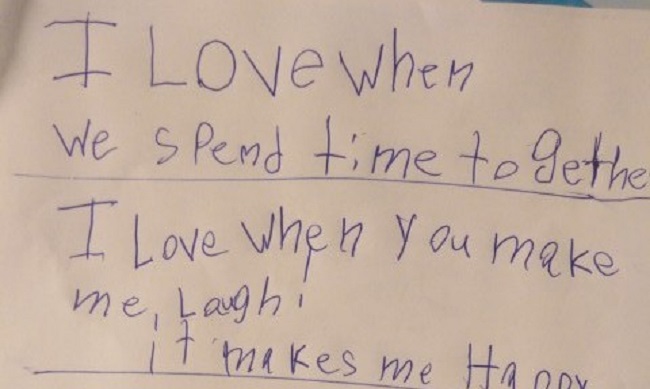 I Love when
we spend time togethe
I Love when you make
me, Laugh!
it makes me Happy